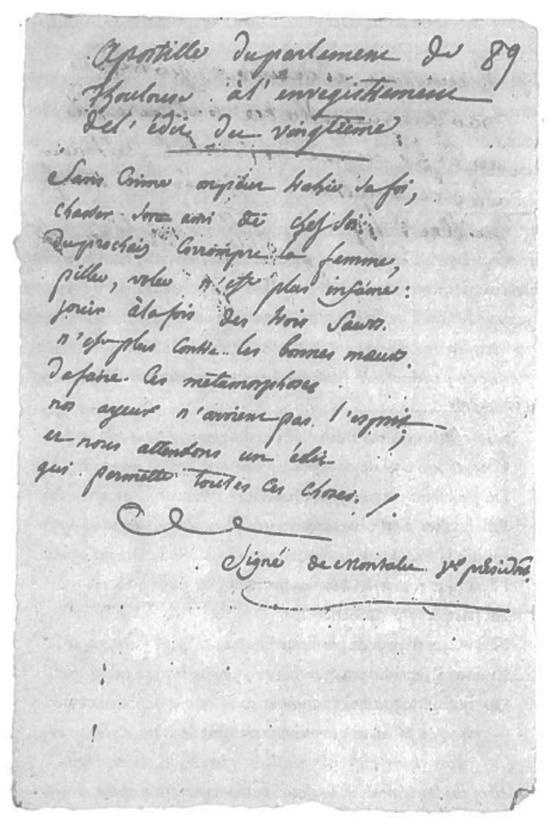 apostille du parlement de 89
Thoulouse à l'enregistrement
de l'édit du vingtième
Sans Crime on peut trahir sa foi,
chasser son ami de chez soi
Du prochain Corrompre la femme,
piller, voler n'est plus infâme:
jouir à la fois des trois Saeurs
n'est plus Contre les bonnes maeurs.
de faire Ces métamorphoses
nos ayeux n'avoient pas l'esprit,
et nous attendons un édit
qui permette toutes Ces choses./.
Signé de Montalu président.